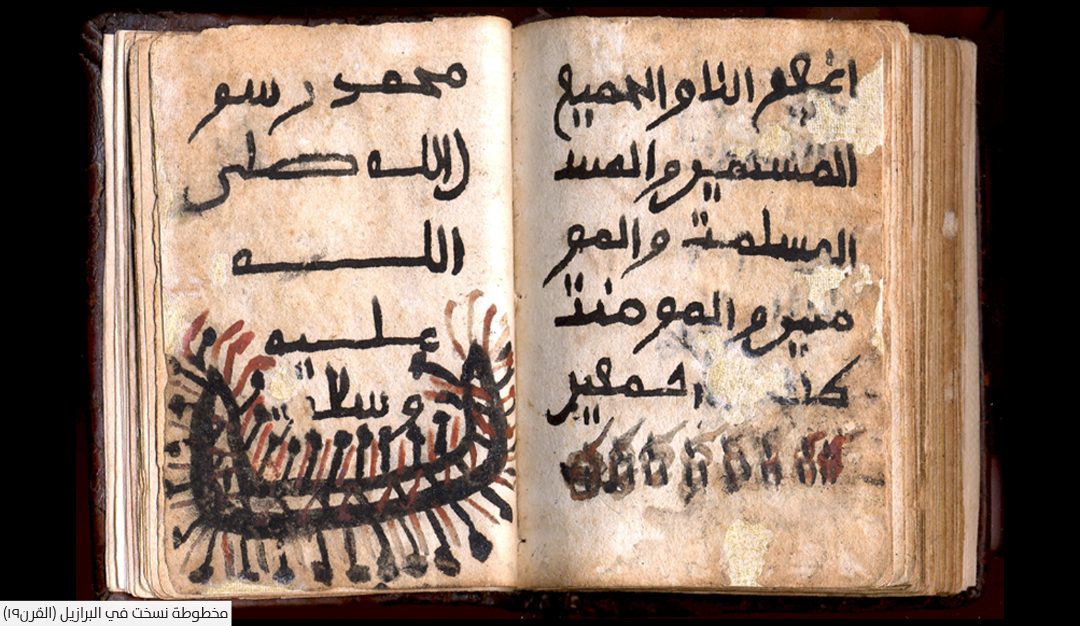 اغفر النا والجميع
المسلمين والمسد
المسلمة والمو
منين والمومنة
اجمعين
محمد رسو
ل الله صلى
الله
عليه
وسلم
مخطوطة نسخت في البرازيل (القرن١٩)